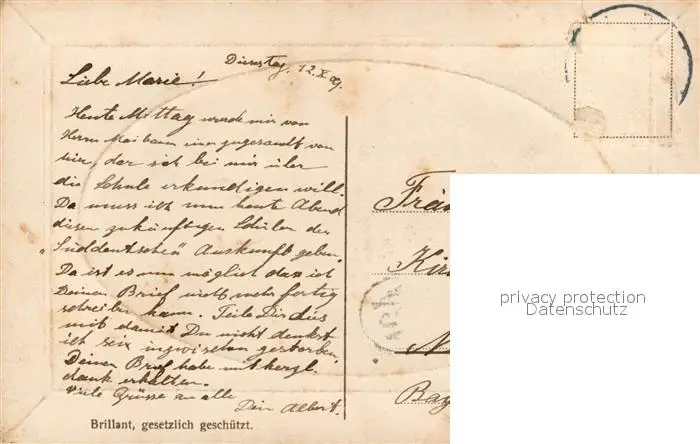 Dienstag, 12.X.09.
Liebe Marie!
Heute Mittag wurde mir von
Herrn Maibaum einer zugesandt von
hier, der sich bei mir über
die Schule erkundigen will.
Da muss ich nun heute Abend
diesen zukünftigen Schüler der
"Süddeutschen" Auskunft geben.
Da ist es nun möglich das ich
Deinen Brief nicht mehr fertig
schreiben kann. Teile Dir dies
mit damit Du nicht denkst
ich sei inzwischen gestorben.
Deinen Brief habe mit herzl.
dank erhalten.
Viele Grüsse an alle
Dein Albert.
Brillant, gesetzlich geschützt.
Frä
Kir
N
Bay
privacy protection
Datenschutz